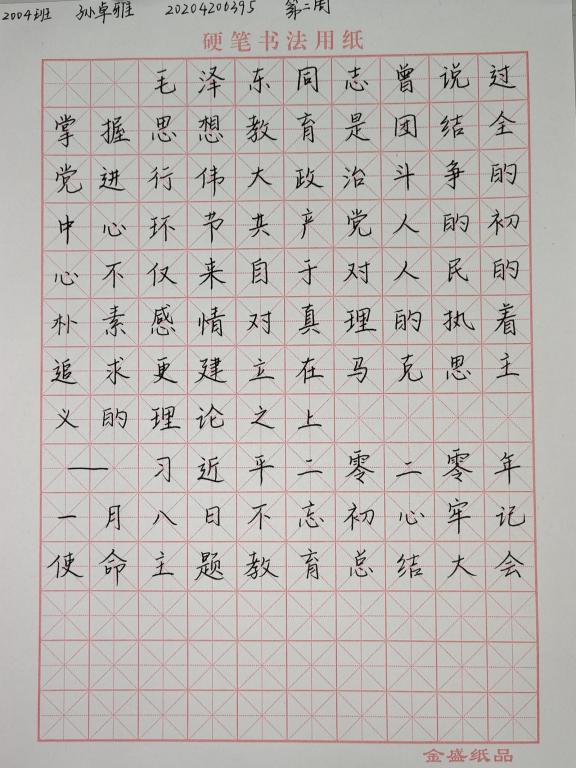 2004班 孙卓雅 20204200395 第二周
硬笔书法用纸
毛泽东同志曾说过
掌握思想教育是团结全
党进行伟大政治斗争的
中心环节共产党人的初
心不仅来自于对人民的
朴素感情对真理的执着
追求更建立在马克思主
义的理论之上
——习近平二零二零年
一月八日不忘初心牢记
使命主题教育总结大会
金盛纸品